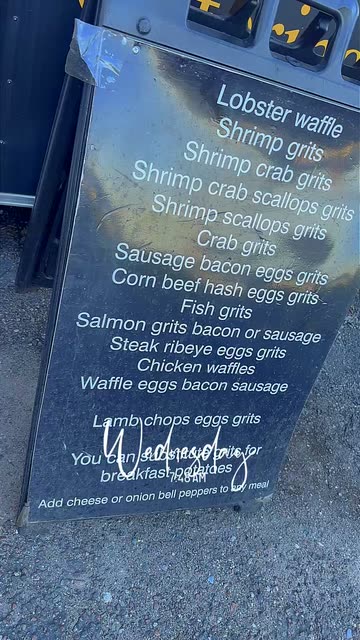 Lobster waffle
Shrimp grits
Shrimp crab grits
Shrimp crab scallops grits
Shrimp scallops grits
Crab grits
Sausage bacon eggs grits
Corn beef hash eggs grits
Fish grits
Salmon grits bacon or sausage
Steak ribeye eggs grits
Chicken waffles
Waffle eggs bacon sausage
Lamb chops eggs grits
Wednesday
You can substitute grits for
breakfast potatoes
7:48 AM
Add cheese or onion bell peppers to any meal